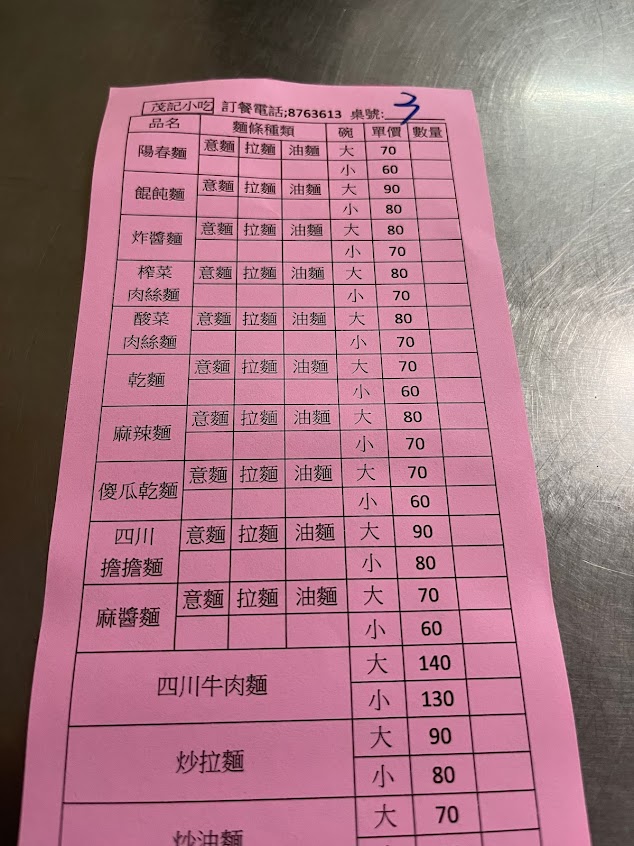 茂記小吃 訂餐電話;8763613 桌號:3
品名 麵條種類 碗 單價 數量
陽春麵 意麵 拉麵 油麵 大 70
小 60
餛飩麵 意麵 拉麵 油麵 大 90
小 80
炸醬麵 意麵 拉麵 油麵 大 80
小 70
榨菜 意麵 拉麵 油麵 大 80
肉絲麵 小 70
酸菜 意麵 拉麵 油麵 大 80
肉絲麵 小 70
乾麵 意麵 拉麵 油麵 大 70
小 60
麻辣麵 意麵 拉麵 油麵 大 80
小 70
傻瓜乾麵 意麵 拉麵 油麵 大 70
小 60
四川 意麵 拉麵 油麵 大 90
擔擔麵 小 80
麻醬麵 意麵 拉麵 油麵 大 70
小 60
四川牛肉麵 大 140
小 130
炒拉麵 大 90
小 80
炒油麵 大 70